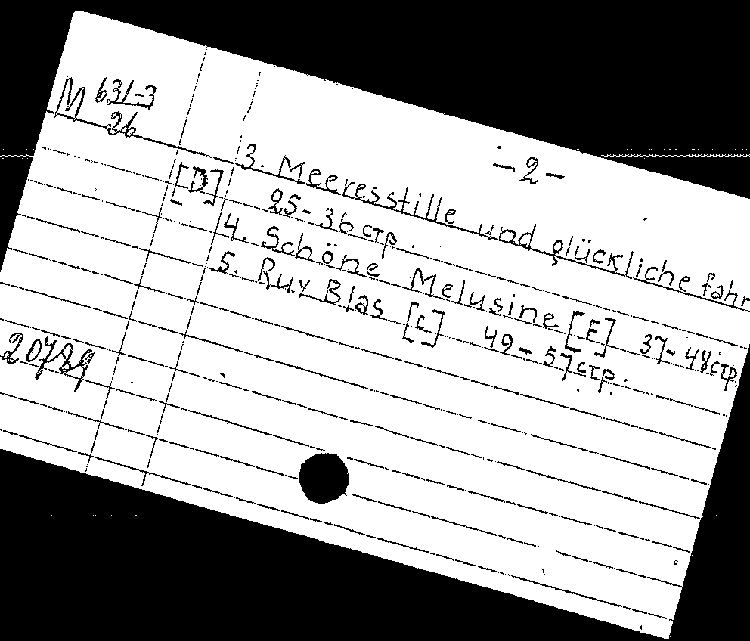 M 631-3
26
-2-
3. Meeresstille und glückliche fahr
[D] 25-36 стр.
4. Schöne Melusine [E] 37-48 стр
5. Ruy Blas [C] 49-57 стр.
20789